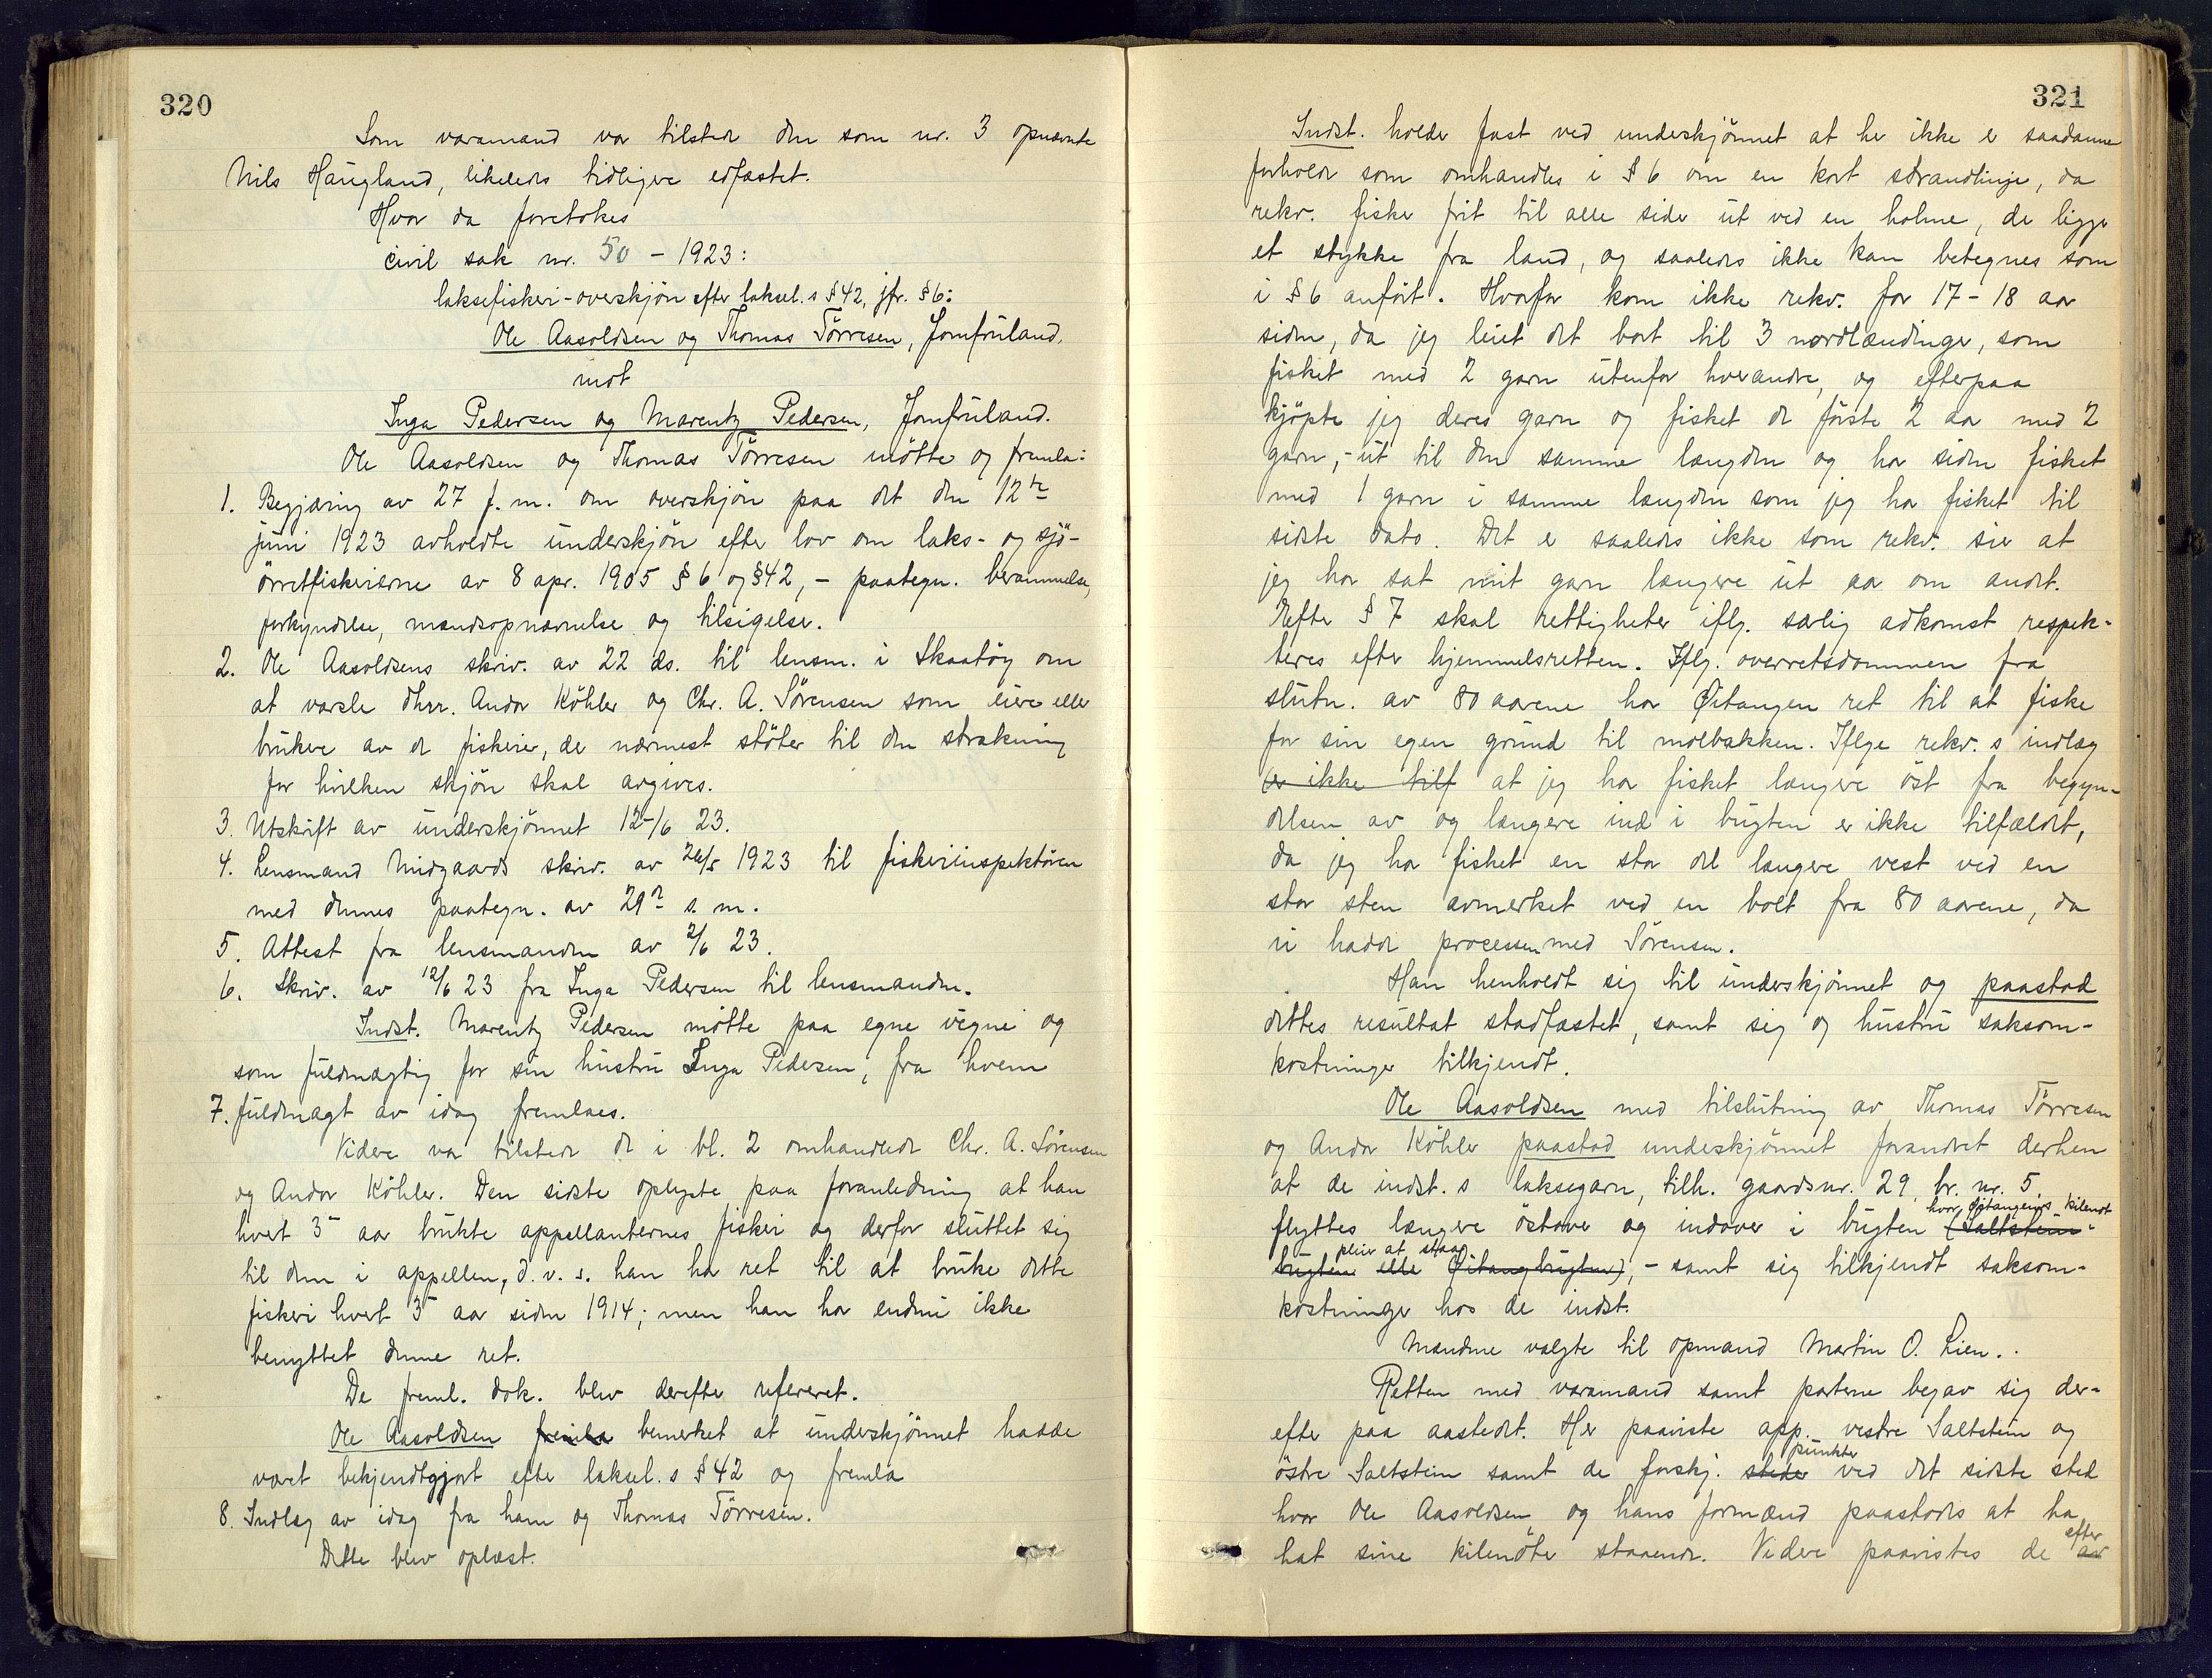 320
Som varamand var tilstede den som nr. 3 opnævnte
Nils Haugland, likeledes tidligere edfæstet.
Hvor da foretokes
civil sak nr. 50 - 1923:
laksefiskeri-overskjøn efter laksel.s § 42, jfr. § 6:
Ole Aasoldsen og Thomas Tørresen, Jomfruland.
mot
Inga Pedersen og Marentz Pedersen, Jomfruland.
Ole Aasoldsen og Thomas Tørresen møtte og fremla:
1. Begjæring av 27 f. m. om overskjøn paa det den 12te
juni 1923 avholdte underskjøn efter lov om laks- og sjø-
ørretfiskeriерne av 8 apr. 1905 § 6 og § 42, - paategn. berammelse,
forkyndelse, mandsopnævnelse og tilsigelse.
2. Ole Aasoldsens skriv. av 22 ds. til lensm. i Skaatøy om
at varsle dhrr. Andor Köhler og Chr. A. Sørensen som eiere eller
brukere av de fiskerier, der nærmest støter til den strækning
for hvilken skjøn skal avgives.
3. Utskrift av underskjønnet 12/6 23.
4. Lensmand Midgaards skriv. av 26/5 1923 til fiskeriinspektøren
med dennes paategn. av 29de s. m.
5. Attest fra lensmanden av 2/6 23.
6. Skriv. av 12/6 23 fra Inga Pedersen til lensmanden.
Indst. Marentz Pedersen møtte paa egne vegne og
som fuldmægtig for sin hustru Inga Pedersen, fra hvem
7. fuldmagt av idag fremlaes.
Videre var tilstede de i bl. 2 omhandlede Chr. A. Sørensen
og Andor Köhler. Den sidste oplyste paa foranledning at han
hvert 3- aar brukte appellanternes fiskeri og derfor sluttet sig
til dem i appellen, d. v. s. han har ret til at bruke dette
fiskeri hvert 3- aar siden 1914; men han har endnu ikke
benyttet denne ret.
De freml. dok. blev derefter refereret.
Ole Aasoldsen fremla bemerket at underskjønnet hadde
været bekjendtgjort efter laksel.s § 42 og fremla
8. Indlæg av idag fra ham og Thomas Tørresen.
Dette blev oplæst.
321
Indst. holder fast ved underskjønnet at her ikke er saadanne
forholde som omhandles i § 6 om en kort strandlinje, da
rekv. fisker frit til alle sider ut ved en holme, der ligger
et stykke fra land, og saaledes ikke kan betegnes som
i § 6 anført. Hvorfor kom ikke rekv. for 17-18 aar
siden, da jeg leiet det bort til 3 nordlændinger, som
fisket med 2 garn utenfor hverandre, og efterpaa
kjøpte jeg deres garn og fisket de første 2 aar med 2
garn, - ut til den samme længden og har siden fisket
med 1 garn i samme længden som jeg har fisket til
sidste dato. Det er saaledes ikke som rekv. sier at
jeg har sat mit garn længere ut aar om andet.
Efter § 7 skal rettigheter iflg. særlig adkomst respek-
teres efter hjemmelsretten. Iflg. overretsdommen fra
slutn. av 80 aarene har Øitangen ret til at fiske
for sin egen grund til molbakken. Iflge rekv.s indlæg
er ikke tilf at jeg har fisket længere øst fra begyn-
delsen av og længere ind i bugten er ikke tilfældet,
da jeg har fisket en stor del længere vest ved en
stor sten avmerket ved en bolt fra 80 aarene, da
vi hadde processen med Sørensen.
Han henholdt sig til underskjønnet og paastod
dettes resultat stadfæstet, samt sig og hustru saksom-
kostninger tilkjendt.
Ole Aasoldsen med tilslutning av Thomas Tørresen
og Andor Köhler paastod underskjønnet forandret derhen
at de indst.s laksegarn, tilh. gaardsnr. 29, br. nr. 5,
hvor Øitangens kilenot
flyttes længere østover og indover i bugten (Saltstein-
pleier at staa
bugten eller Øitangbugten), - samt sig tilkjendt saksom-
kostninger hos de indst.
Mændene valgte til opmand Martin O. Lien.
Retten med varamand samt parterne begav sig der-
efter paa aastedet. Her paaviste app. vestre Saltstein og
punkter
østre Saltstein samt de forskj. steder ved det sidste sted
hvor Ole Aasoldsen og hans formænd paastodes at ha
efter
hat sine kilenøter staaende. Videre paavistes de av